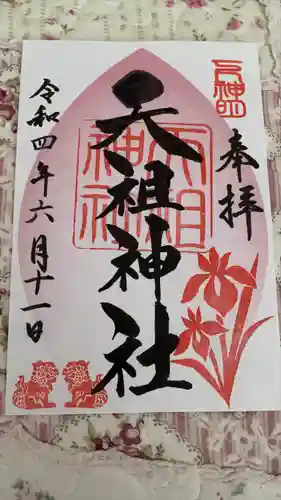 奉拝
天祖神社
天祖神社
令和四年六月十一日